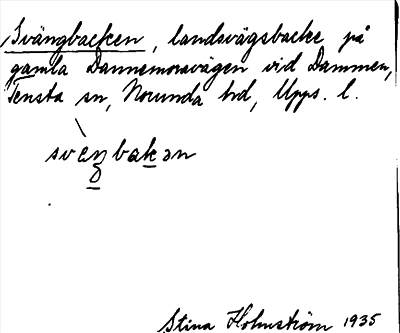 Svängbacken, landsvägsbacke på
gamla Dannemoravägen vid Dammen,
Tensta sn, Norunda hd, Upps. l.
svæŋbakən
Stina Holmström 1935